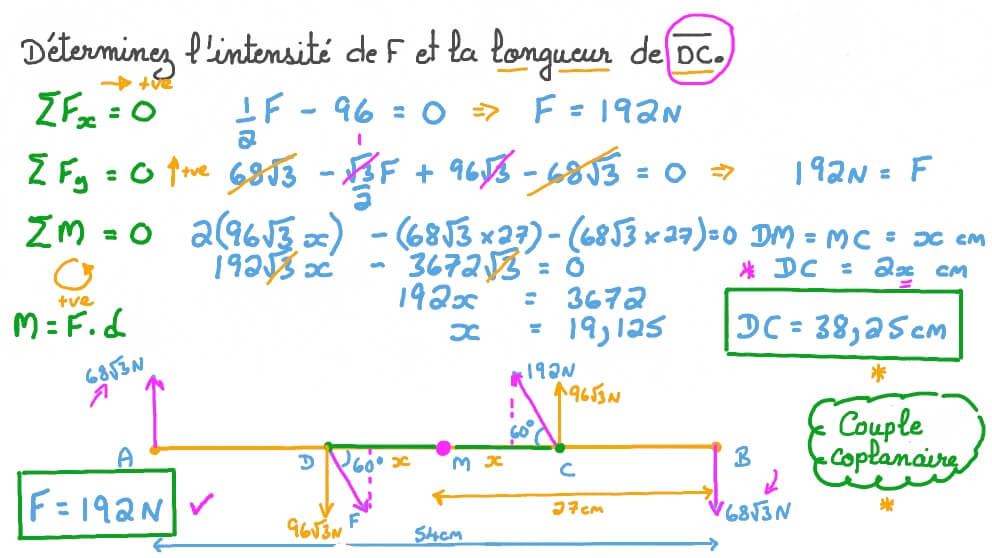 Déterminez l'intensité de F et la longueur de DC.
→ +ve
ΣFx = 0 1/2 F - 96 = 0 ⇒ F = 192N
ΣFy = 0 ↑+ve 68√3 - √3/2 F + 96√3 - 68√3 = 0 ⇒ 192N = F
1
ΣM = 0 2(96√3 x) - (68√3 × 27) - (68√3 × 27) = 0 DM = MC = x cm
192√3 x - 3672√3 = 0 * DC = 2x cm
+ve
192x = 3672
M = F. d x = 19,125 DC = 38,25 cm
*
68√3 N 192N 96√3 N
60°
Couple
coplanaire
*
A D 60° x M x C B
F = 192 N ✓ 96√3 N F 27cm 68√3 N
54cm